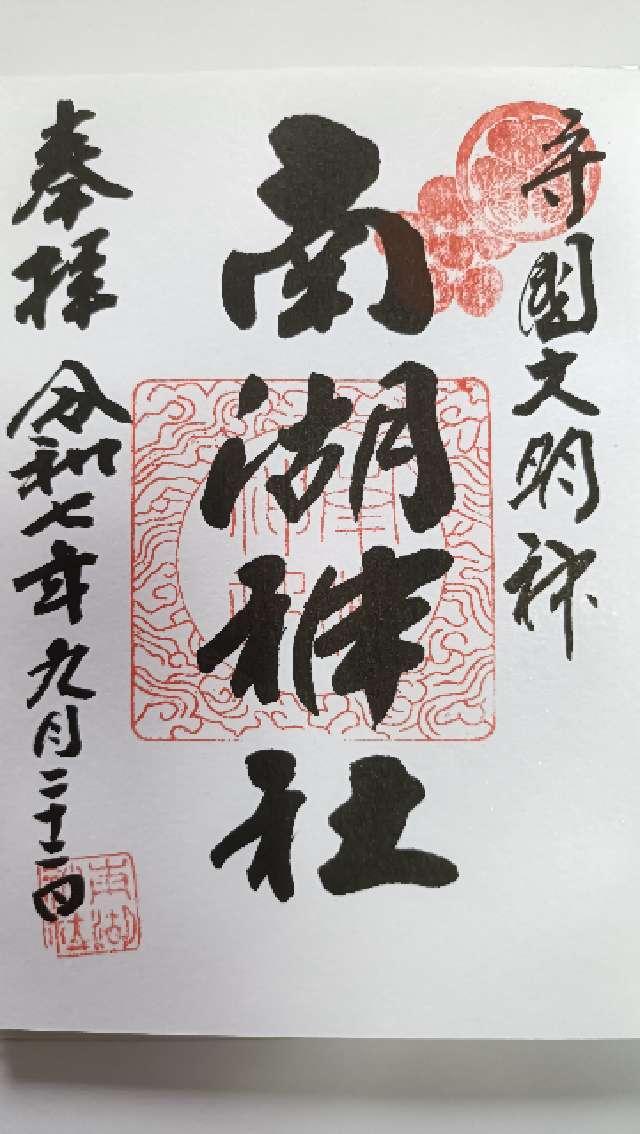 守國大明神
南湖神社
奉拝 令和七年九月二十二日
南湖神社